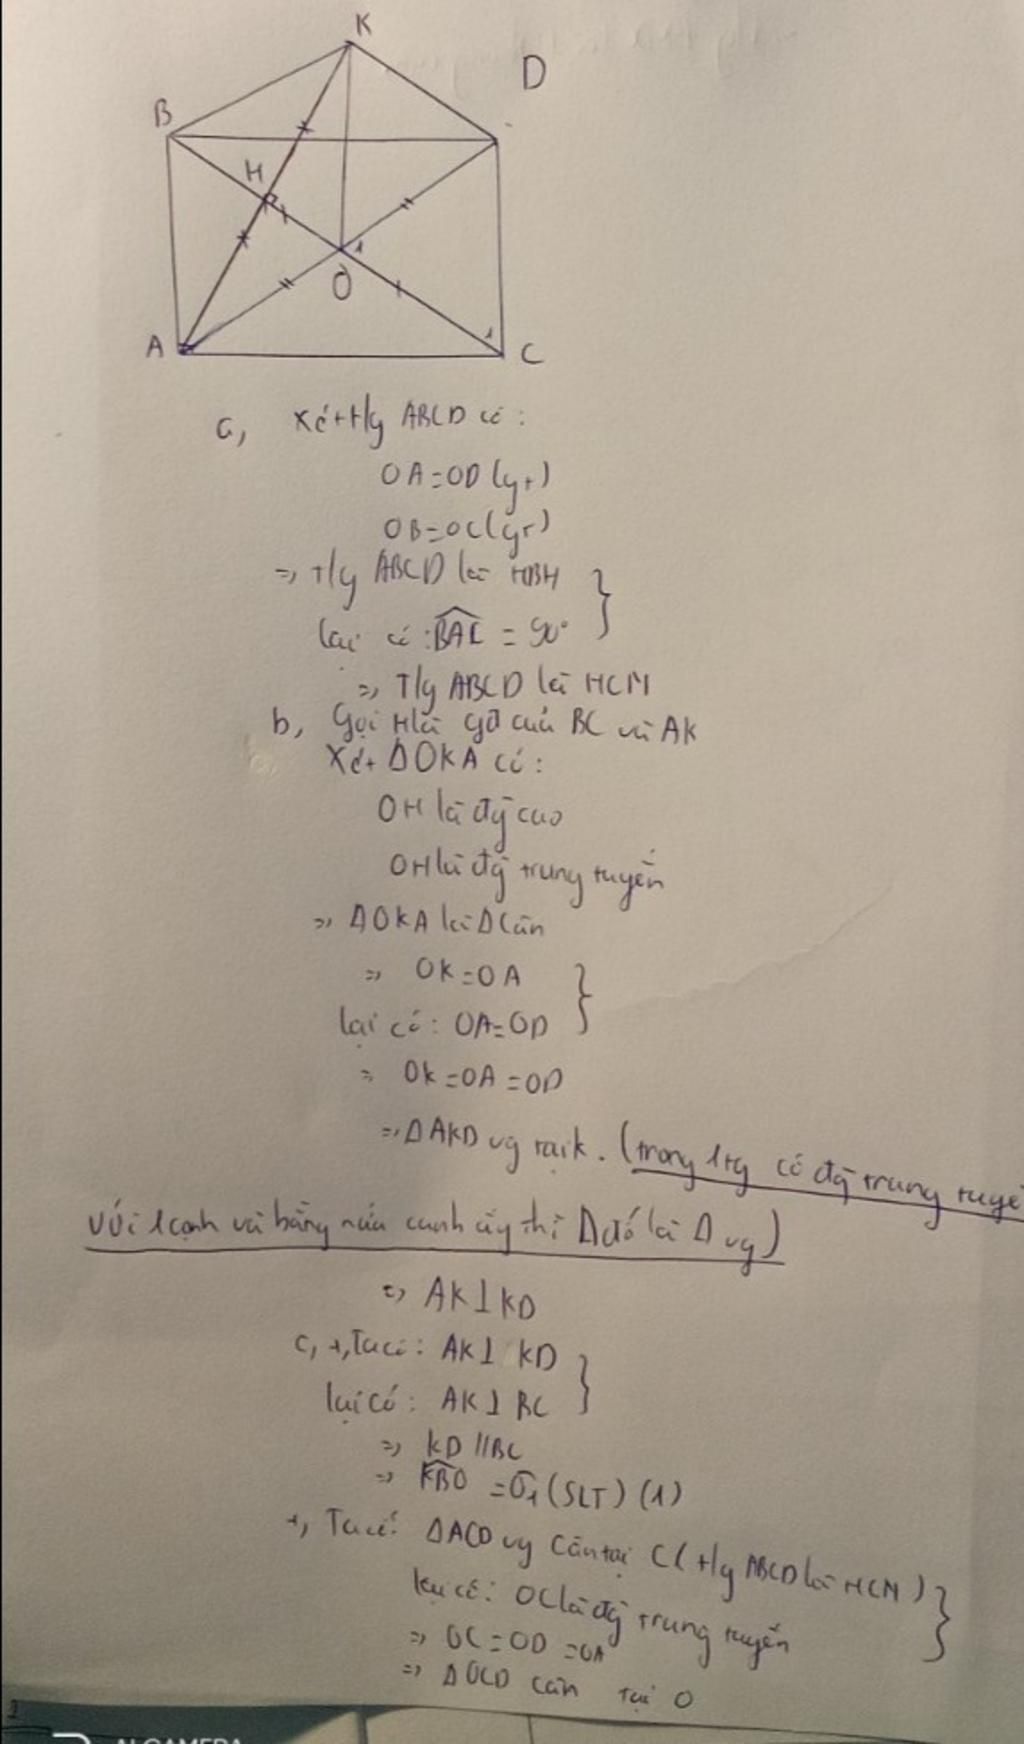 K
D
B
H
1
O
A
1
C
a, Xét t/g ABCD có:
OA=OD (gt)
OB=OC (gt)
=> T/g ABCD là HBH
lại có: BAC = 90°
=> T/g ABCD là HCN
b, Gọi H là gđ của BC và AK
Xét ΔOKA có:
OH là đg cao
OH là đg trung tuyến
=> ΔOKA là Δ cân
=> OK=OA
lại có: OA=OD
=> OK=OA=OD
=> ΔAKD vg tại K. (trong 1 tg có đg trung tuyế
với 1 cạnh và bằng nửa cạnh ấy thì Δ đó là Δ vg)
=> AK⊥KD
c, +, Ta có: AK⊥ KD
lại có: AK⊥BC
=> KD//BC
=> KBO = O1 (SLT) (1)
+, Ta có: ΔACD vg cân tại C (t/g ABCD là HCN)
lại có: OC là đg trung tuyến
=> OC=OD=OA
=> ΔOCD cân tại O
AI CAMERA